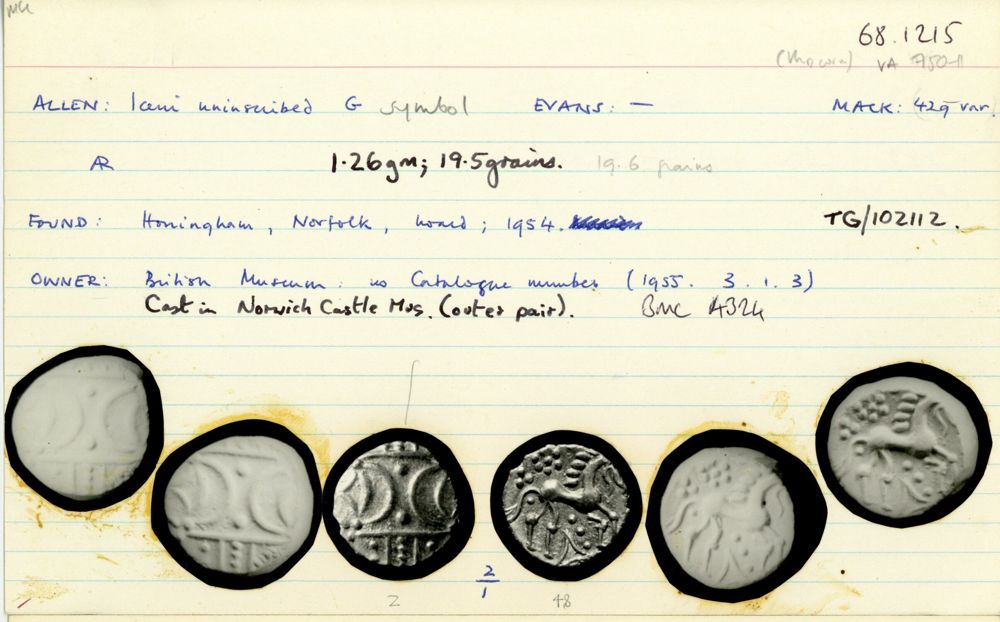 68.1215
VA 750-1
ALLEN: Iceni uninscribed G symbol EVANS: — MACK: 429 var.
AR 1.26gm; 19.5grains. 19.6 grains
FOUND: Honingham, Norfolk, hoard; 1954. TG/102112.
OWNER: British Museum: no Catalogue number (1955. 3. 1. 3)
Cast in Norwich Castle Mus. (outer pair). BMC 4324
2
1
2 48